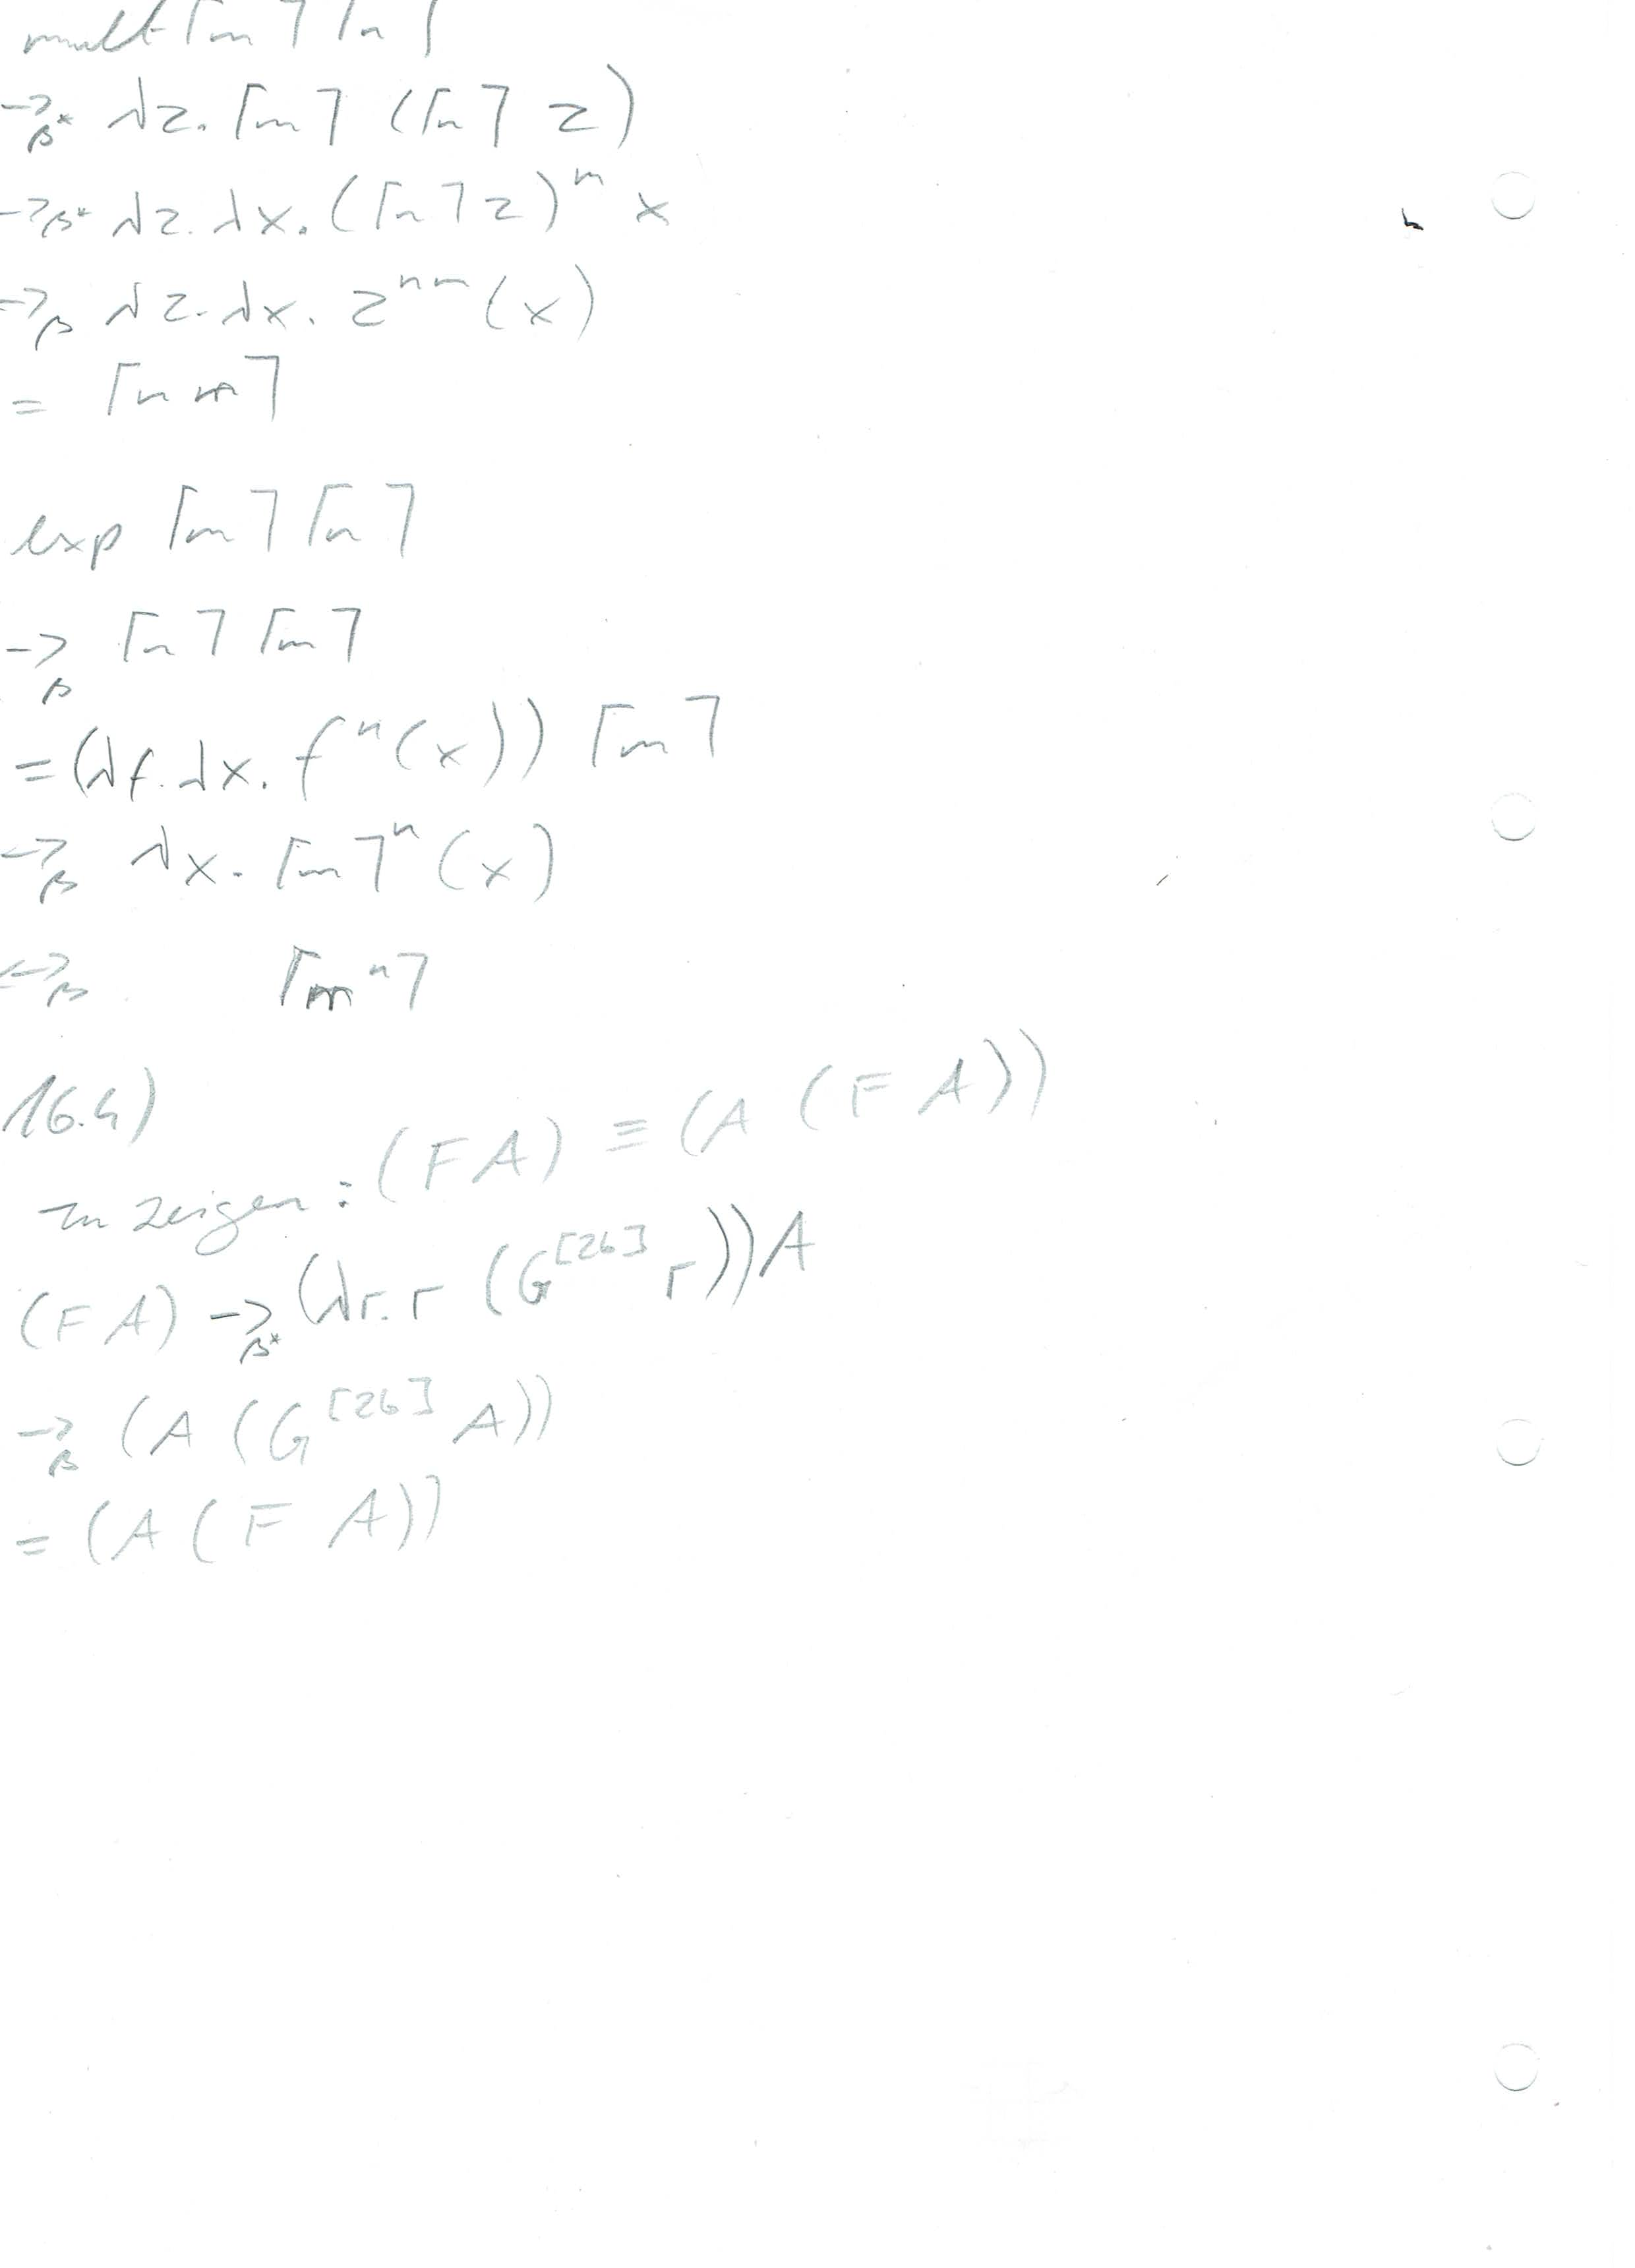 mult ⌈m⌉ ⌈n⌉
→β* λz. ⌈m⌉ (⌈n⌉ z)
→β* λz. λx. (⌈n⌉ z)^m x
→β λz. λx. z^nm (x)
= ⌈n m⌉
exp ⌈m⌉ ⌈n⌉
→β ⌈n⌉ ⌈m⌉
= (λf. λx. f^n (x)) ⌈m⌉
→β λx. ⌈m⌉^n (x)
↔β ⌈m^n⌉
16.4)
zu zeigen: (F A) ≡ (A (F A))
(F A) →β* (λr. r (G^[26] r)) A
→β (A (G^[26] A))
= (A (F A))